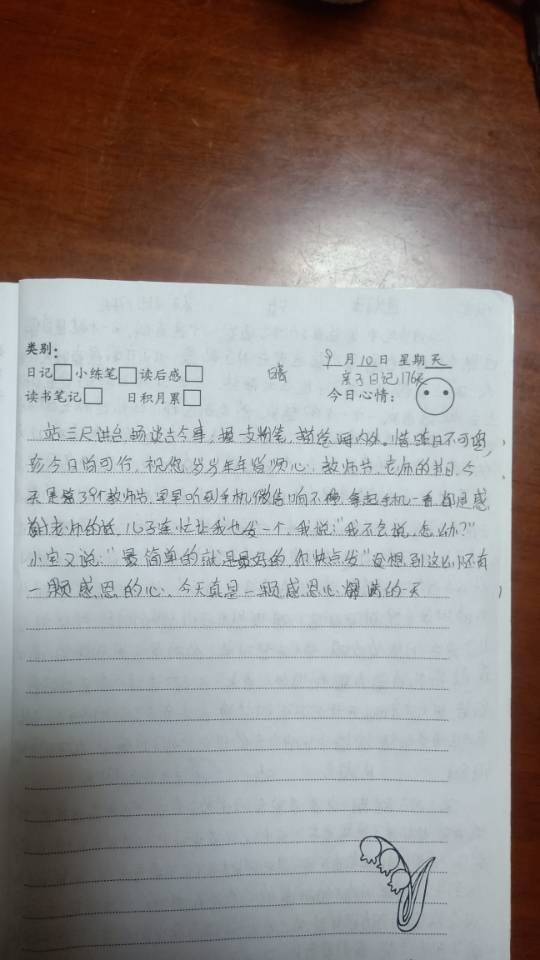 类别：
日记 小练笔 读后感 晴 9月10日 星期天
亲子日记176天
读书笔记 日积月累 今日心情：
站三尺讲台，畅谈古今事，握一支粉笔，描绘海内外。惜昨日不可留，
珍今日尚可行，祝您岁岁年年皆顺心。教师节，老师的节日，今
天是第39个教师节，早早听到手机微信响不停，拿起手机一看都是感
谢老师的话，儿子连忙让我也发一个，我说："我不会说，怎么办？"
小宝又说："最简单的就是最好的，你快点发"没想到这么小还有
一颗感恩的心，今天真是一颗感恩心 满满的一天